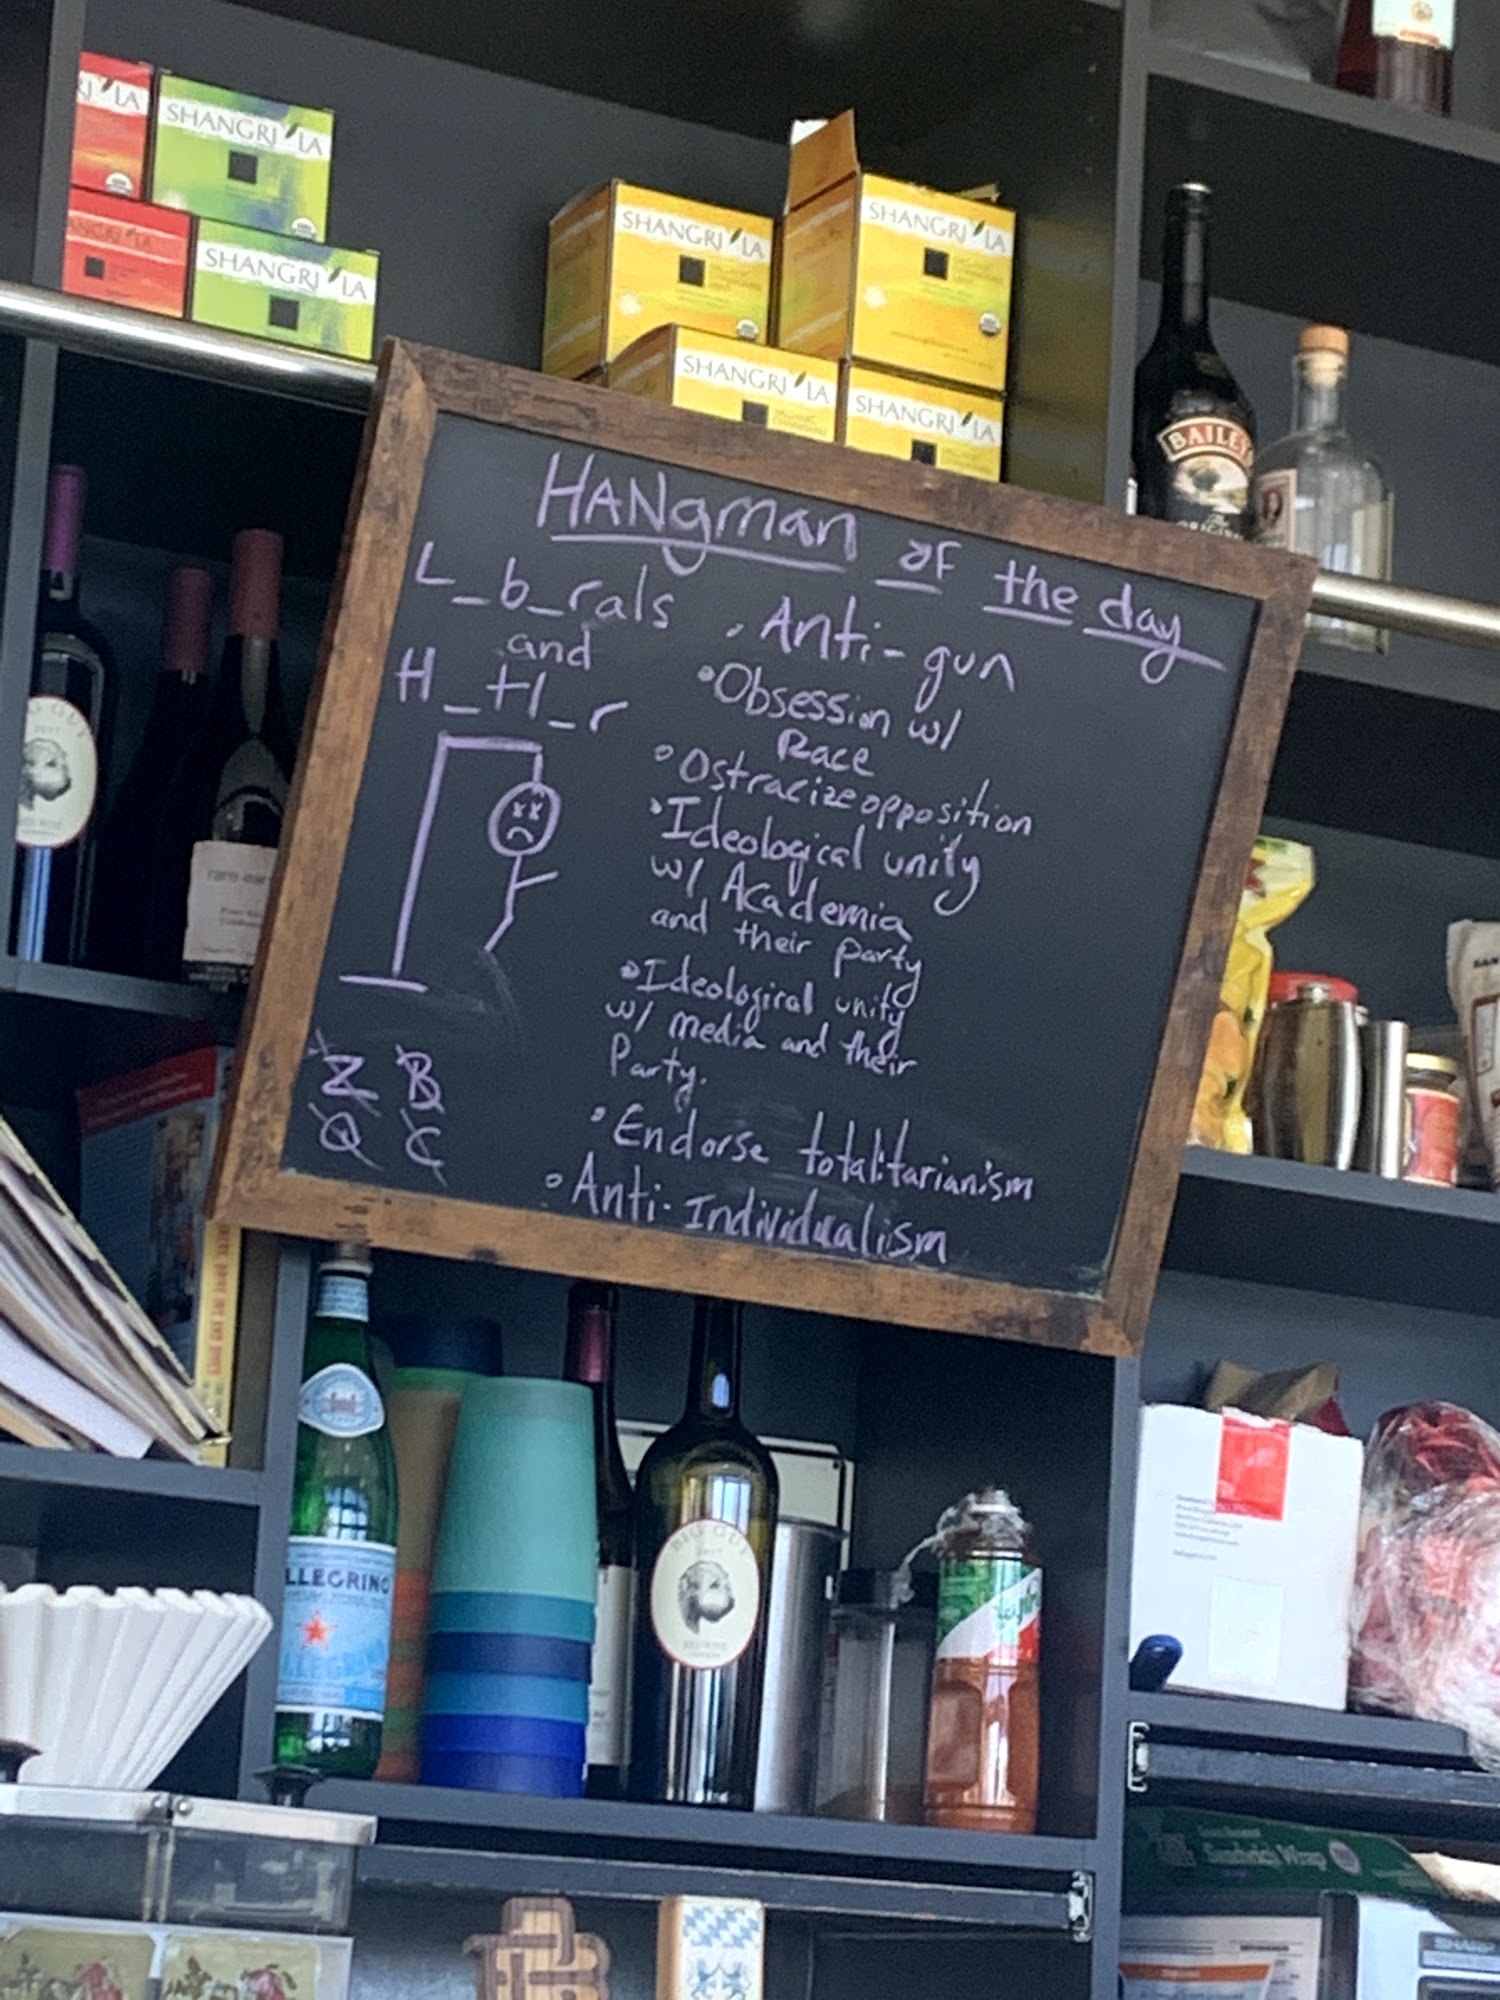 SHANGRI LA
SHANGRI LA
SHANGRI LA
SHANGRI LA
SHANGRI LA
SHANGRI LA
BAILEYS
The
ORIGINAL
HANgman of the day
L_b_rals
and
H_tl_r
• Anti-gun
• Obsession w/
Race
• Ostracize opposition
• Ideological unity
w/ Academia
and their party
• Ideological unity
w/ media and their
Party.
• Endorse totalitarianism
• Anti-Individualism
Z B
Q C
rare earth
LLEGRINO
BIG GUY
2017
Sandwich Wrap
SHARP